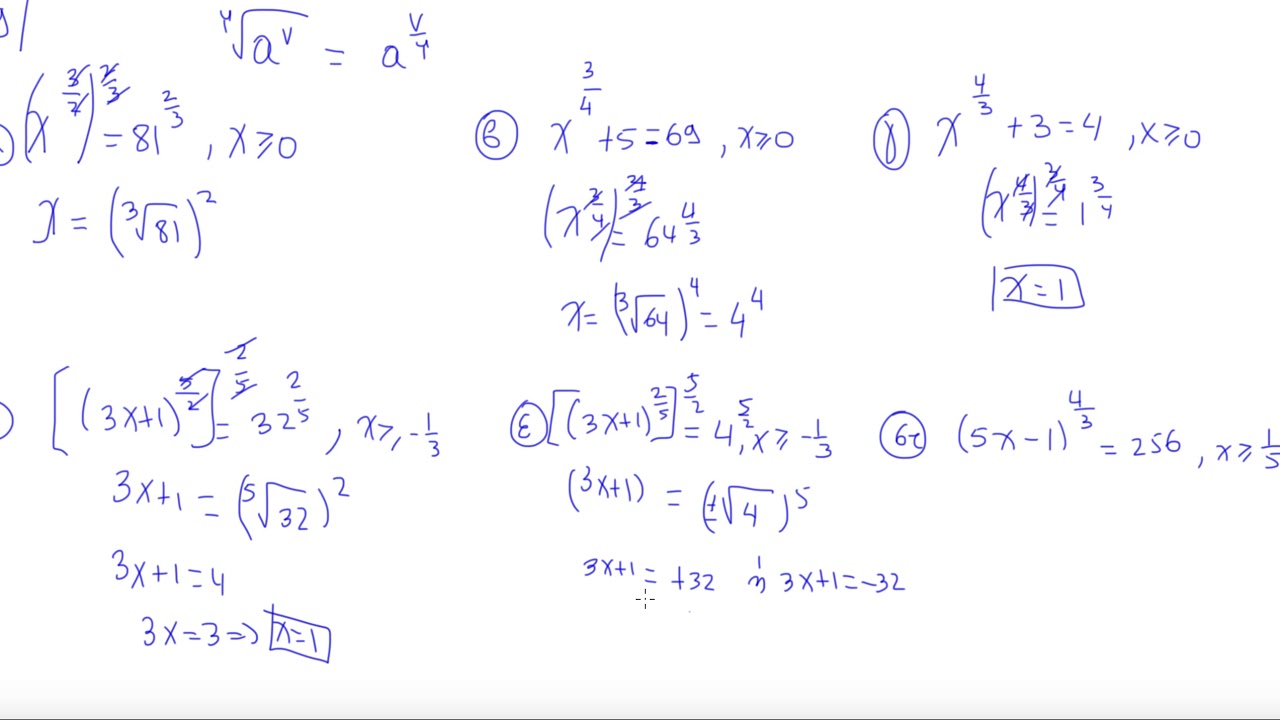 ⁴√(aᵛ) = a^(ν/4)
(x^(3/2))^(2/3) = 81^(2/3) , x ≥ 0
x = (³√81)²
β x^(3/4) + 5 = 69 , x ≥ 0
(x^(3/4))^(4/3) = 64^(4/3)
x = (³√64)⁴ = 4⁴
γ x^(4/3) + 3 = 4 , x ≥ 0
(x^(4/3))^(3/4) = 1^(3/4)
x = 1
[(3x+1)^(5/2)]^(2/5) = 32^(2/5) , x ≥ -1/3
3x+1 = (⁵√32)²
3x+1 = 4
3x = 3 => x = 1
ε [(3x+1)^(2/5)]^(5/2) = 4^(5/2) , x ≥ -1/3
(3x+1) = (±√4)⁵
3x+1 = +32 ή 3x+1 = -32
στ (5x-1)^(4/3) = 256 , x ≥ 1/5